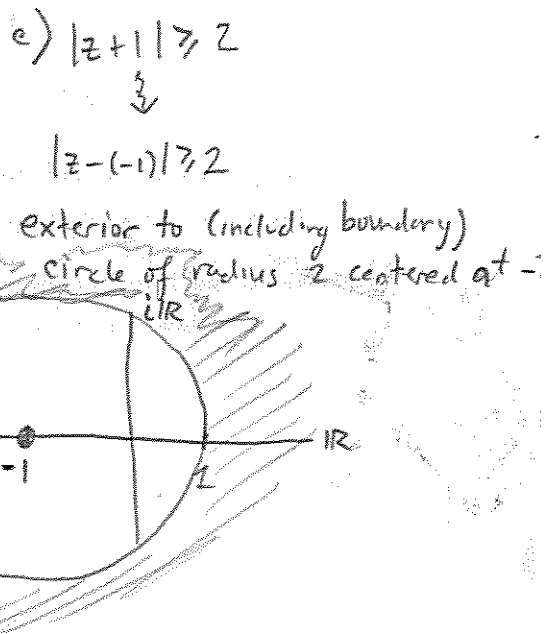 e) |z+1| ⩾ 2
|z-(-1)| ⩾ 2
exterior to (including boundary)
circle of radius 2 centered at -
iℝ
ℝ
-1
1